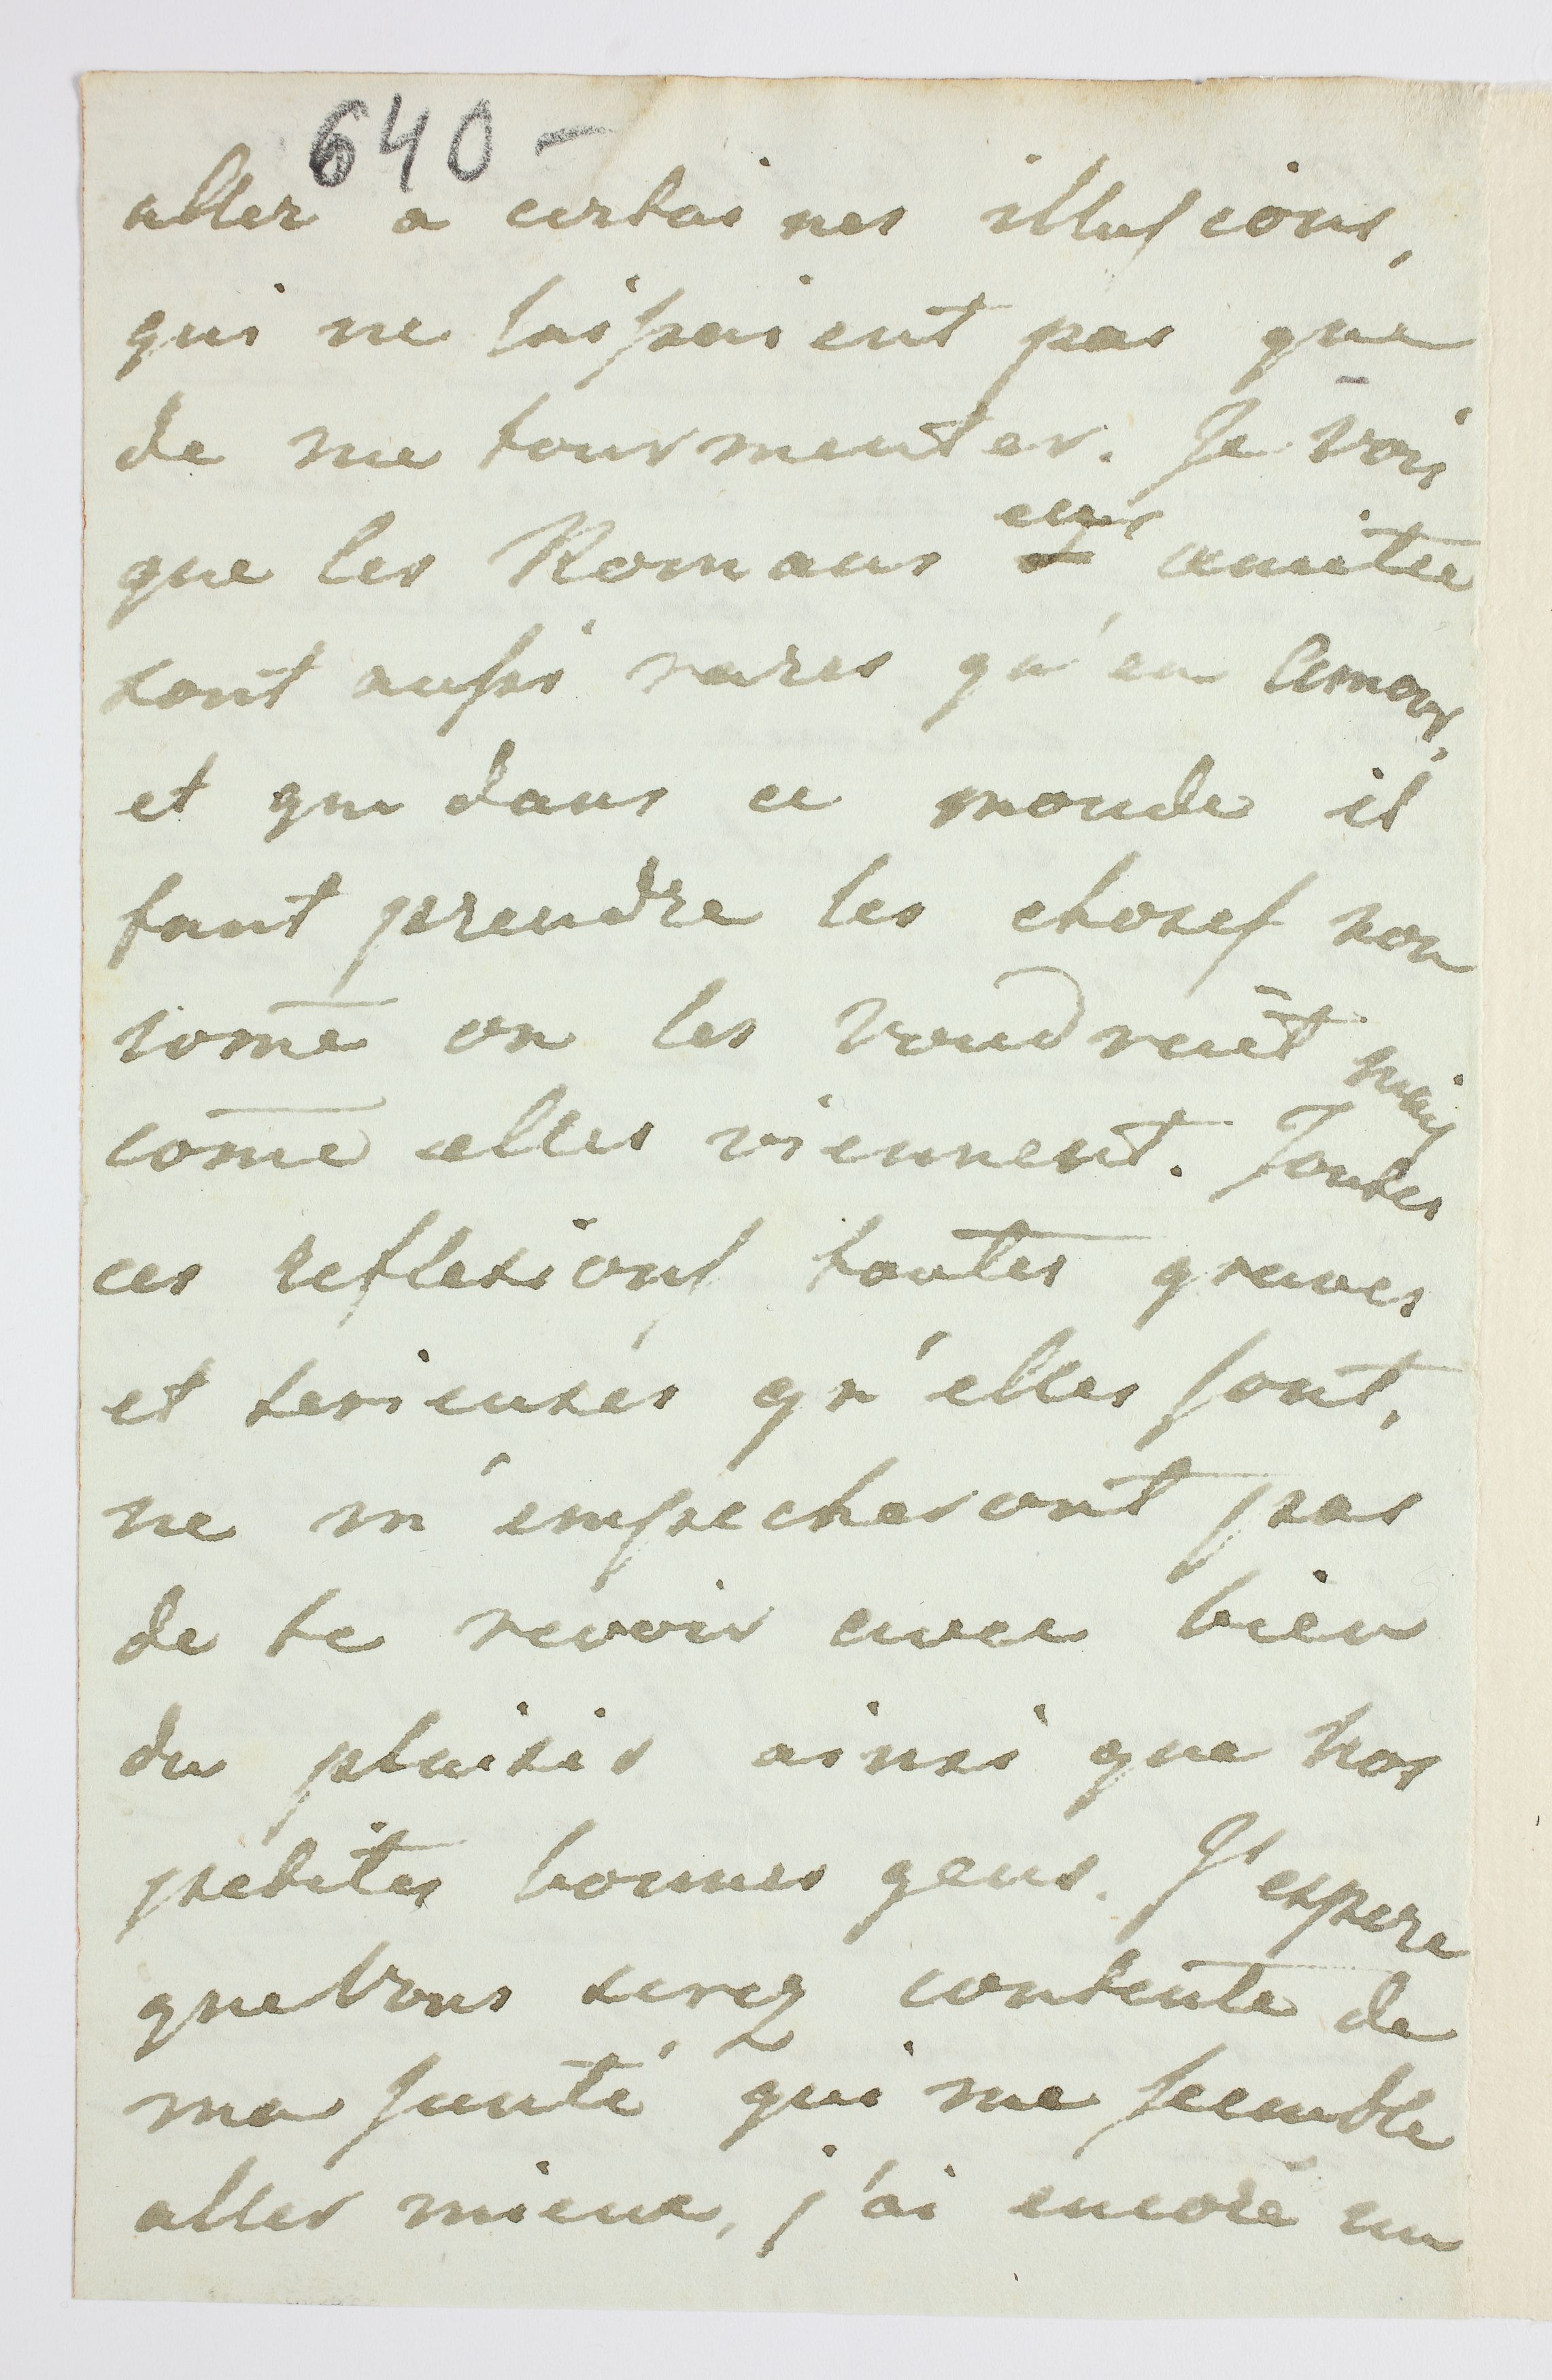 640 -
aller a certaines illusions,
qui ne laissaient pas que
de me tourmenter. Je vois
que les Romans en amitie
sont aussi rares qu'en Amour,
et que dans ce monde il
faut prendre les choses non
come on les voudrait mais
come elles viennent. Toutes
ces reflexions toutes graves
et serieuses qu'elles sont,
ne m'empecheront pas
de te revoir avec bien
du plaisir ainsi que nos
petites bonnes gens. J'espere
que vous serez contente de
ma santé qui me semble
aller mieux, j'ai encore un